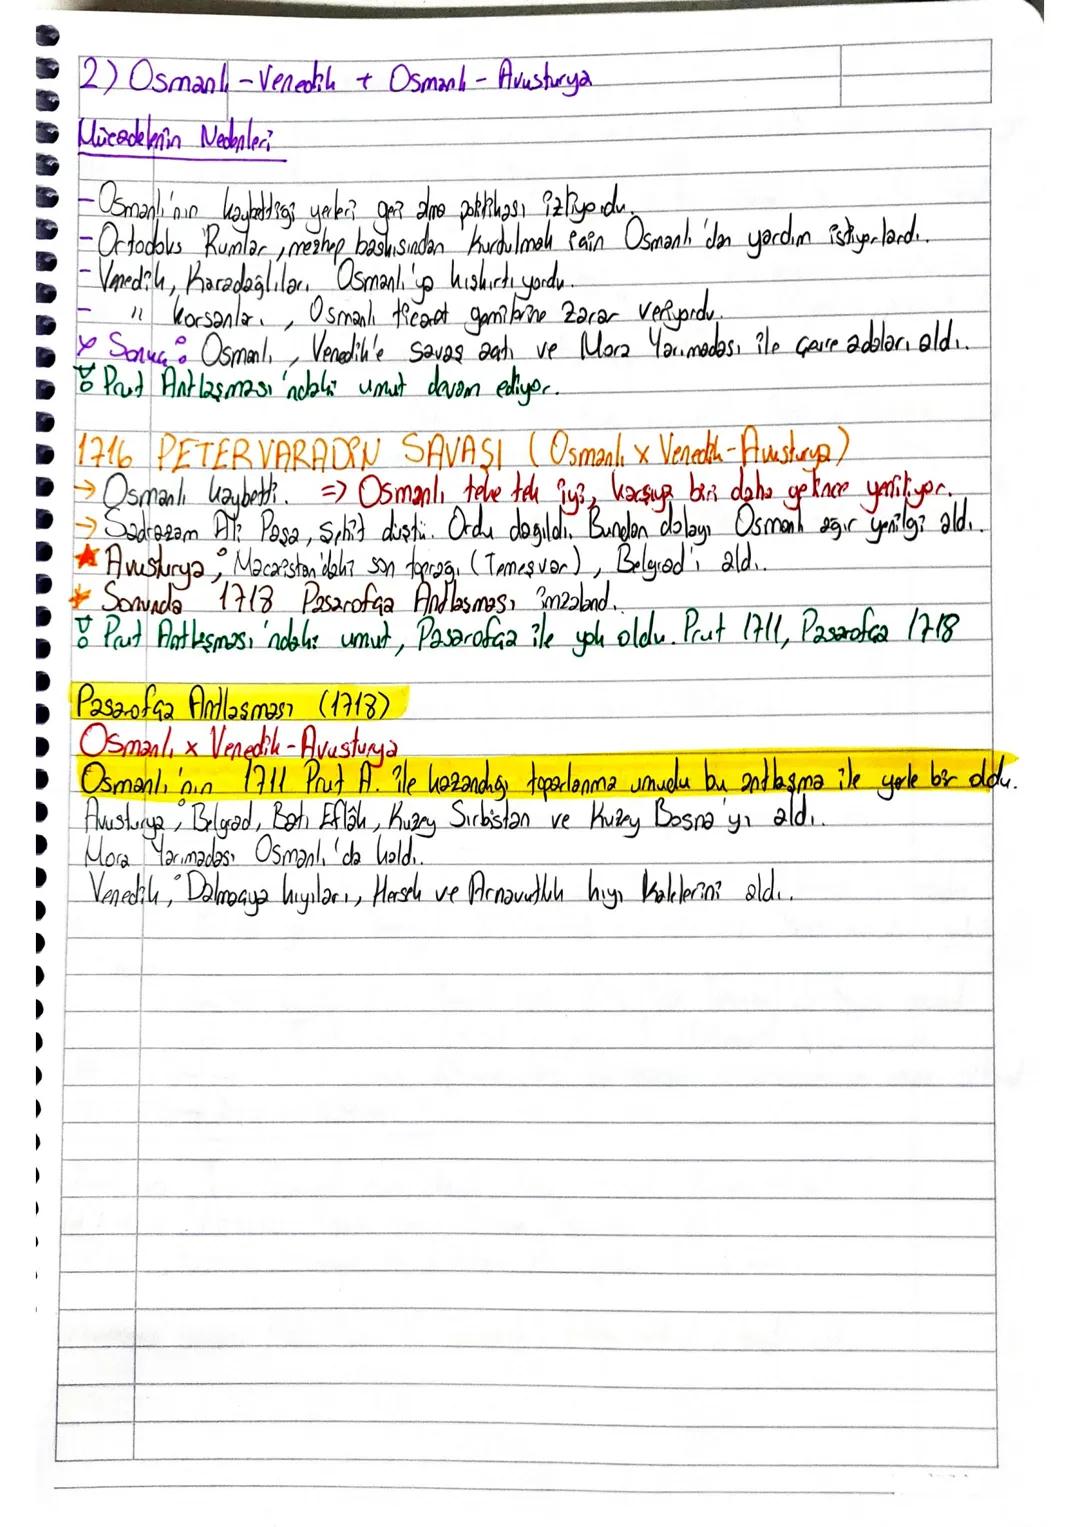 2) Osmanlı - Venedik + Osmanlı - Avusturya
Mücadelenin Nedenleri
- Osmanlı'nın kaybettiği yerleri geri alma politikası izliyordu.
- Ortodoks Rumlar, mezhep baskısından kurdulmak için Osmanlı'dan yardım istiyorlardı.
- Venedik, Karadağlıları Osmanlı'ya kışkırtıyordu.
- " korsanları, Osmanlı ticaret gemilerine zarar veriyordu.
* Sonuç: Osmanlı, Venedik'e savaş açtı ve Mora Yarımadası ile çevre adaları aldı.
Prut Antlaşması'ndaki umut devam ediyor.
1716 PETERVARADİN SAVAŞI (Osmanlı x Venedik-Avusturya)
→ Osmanlı kaybetti. => Osmanlı teke tek iyi, karşıya biri daha gelince yeniliyor.
→ Sadrazam Ali Paşa, şehit düştü. Ordu dağıldı. Bundan dolayı Osmanlı ağır yenilgi aldı.
★ Avusturya; Macaristan'daki son toprağı (Temeşvar), Belgrad'ı aldı.
* Sonunda 1718 Pasarofça Antlaşması imzalandı.
Prut Antlaşması'ndaki umut, Pasarofça ile yok oldu. Prut 1711, Pasarofça 1718
Pasarofça Antlaşması (1718)
Osmanlı x Venedik - Avusturya
Osmanlı'nın 1711 Prut A. ile kazandığı toparlanma umudu bu antlaşma ile yerle bir oldu.
Avusturya; Belgrad, Batı Eflâk, Kuzey Sırbistan ve Kuzey Bosna'yı aldı.
Mora Yarımadası Osmanlı'da kaldı.
Venedik; Dalmaçya kıyıları, Hersek ve Arnavutluk kıyı kalelerini aldı.